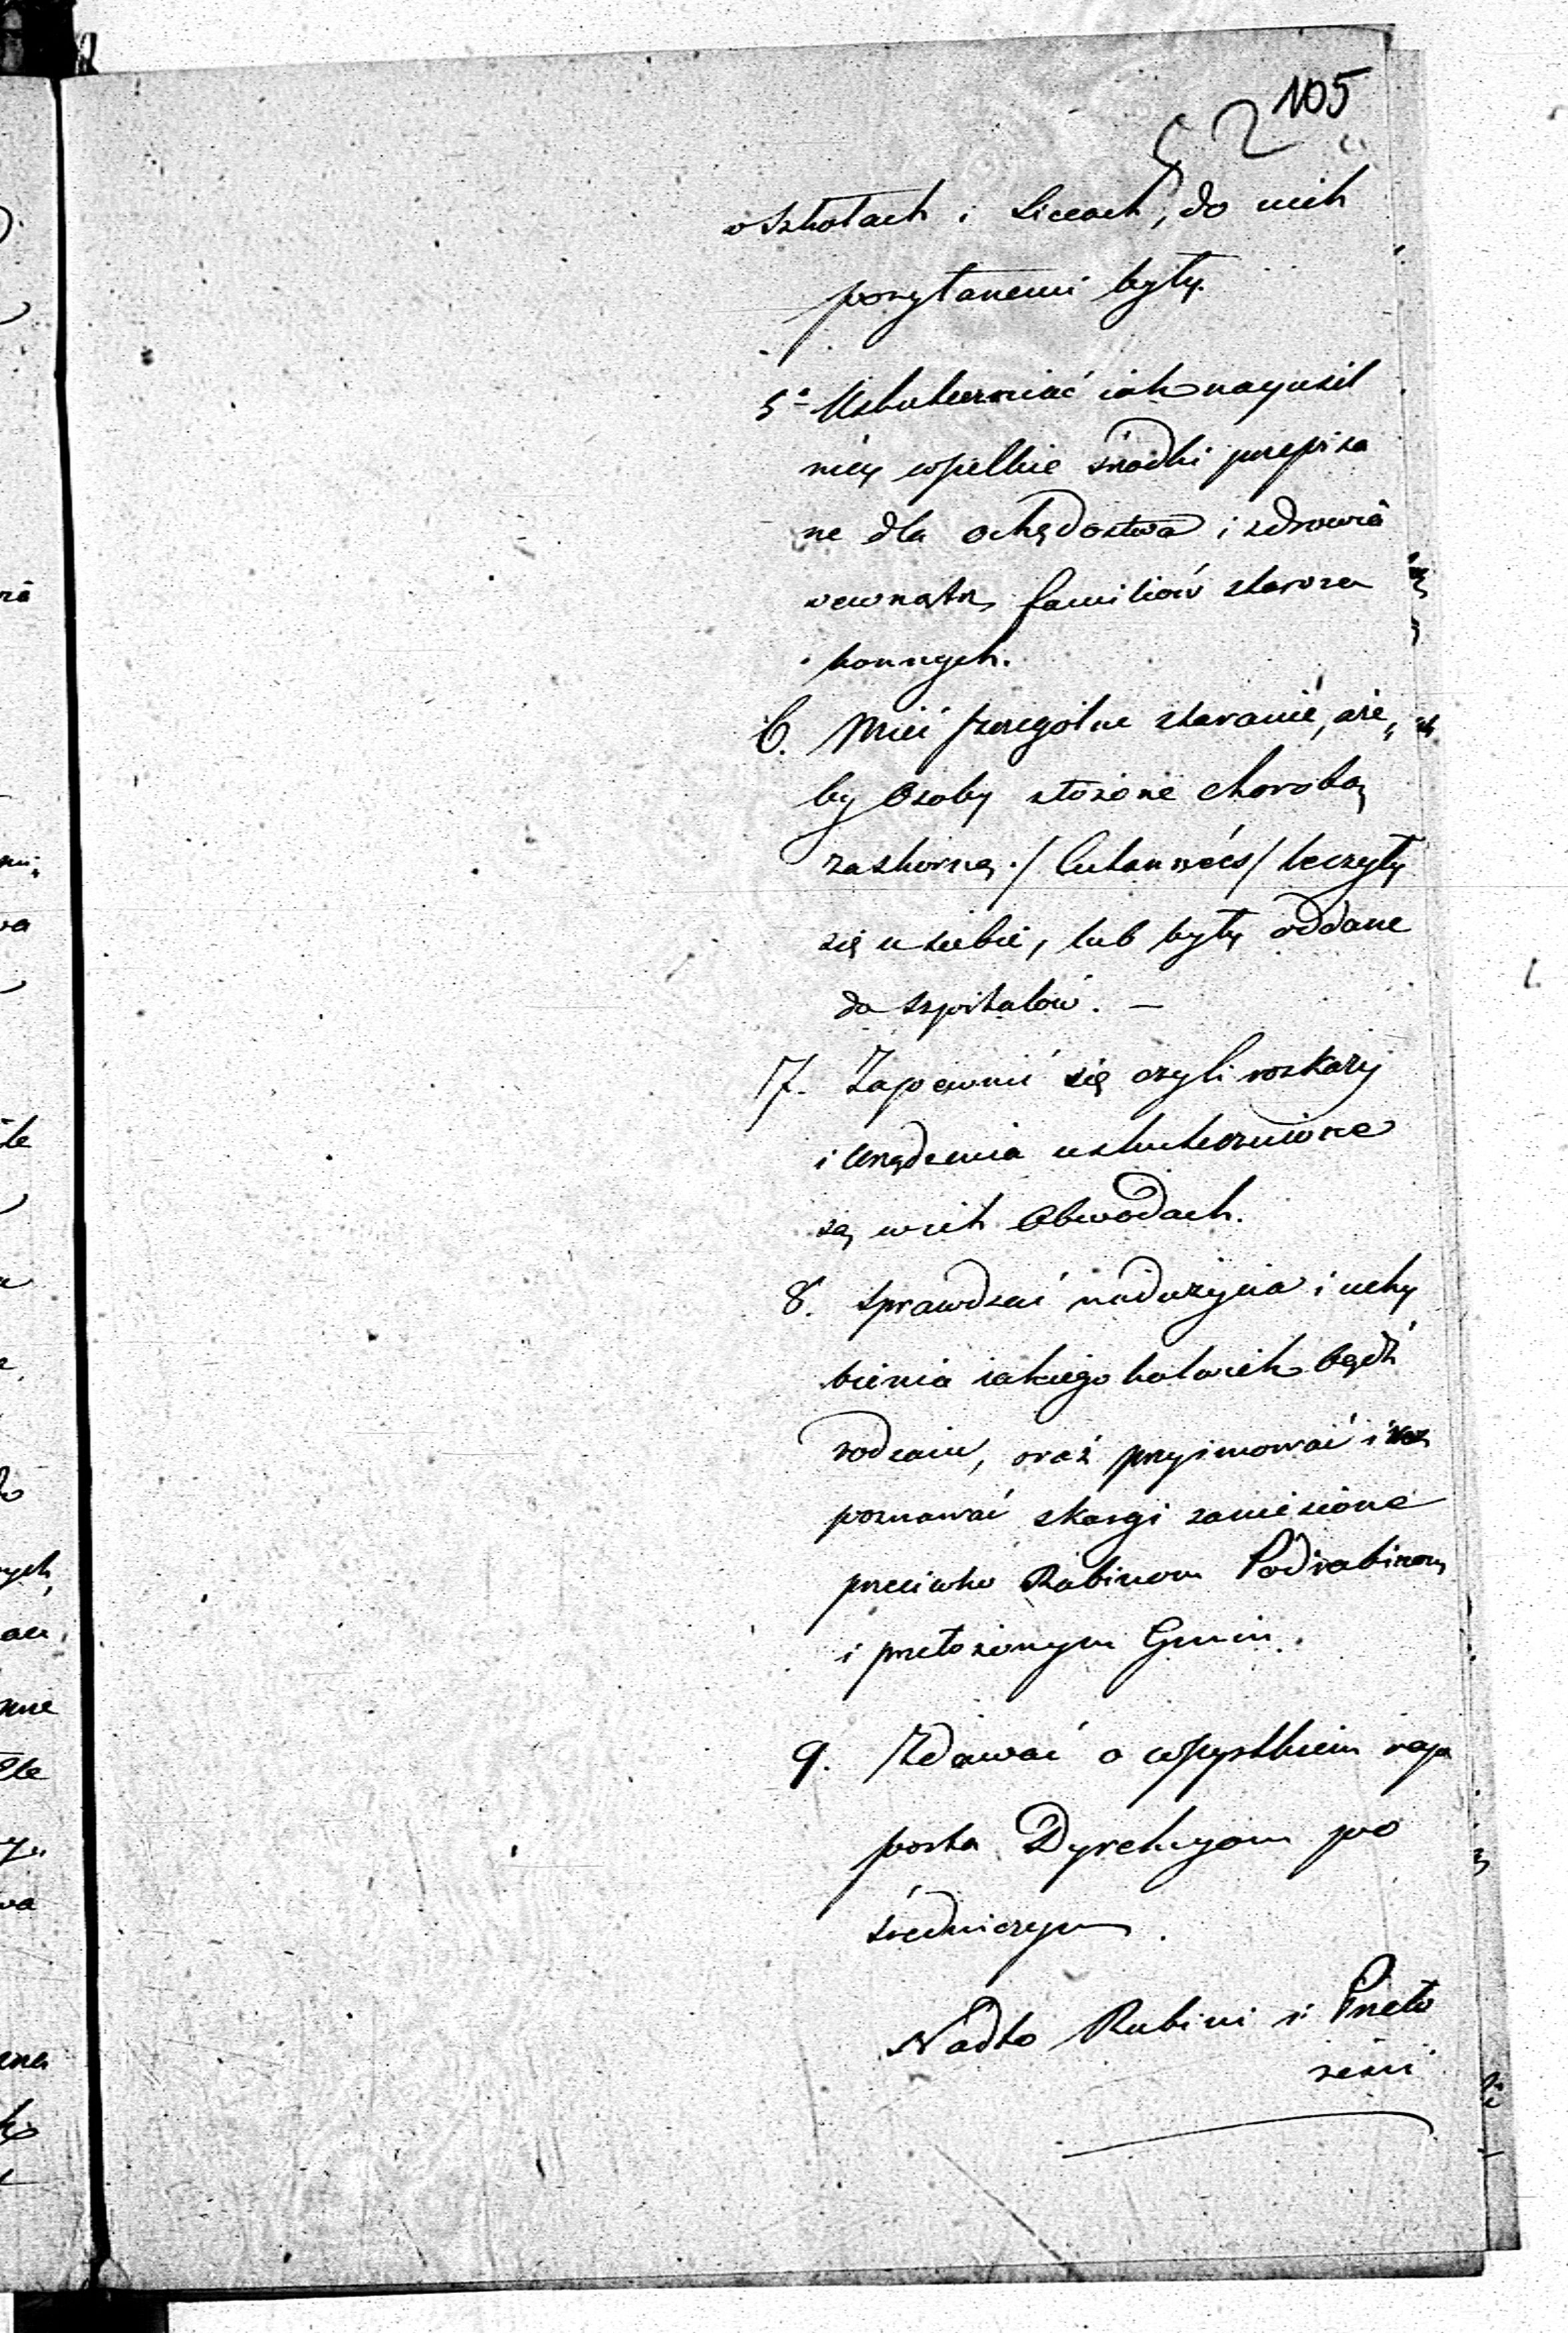 105
52
w Szkołach i Liceach, do nich
posyłanemi były.
5° Uskuteczniać iak nayusil
niey wszelkie środki przepisa
ne dla ochędostwa i zdrowia
wewnątrz familiów staroza
konnych.
6. Mieć szczególne staranie, aże„
by Osoby złożone chorobą
zaskorną /: Cutannées / leczyły
się u siebie, lub były oddane
do szpitalów. —
7. Zapewnić się czyli rozkazy
i Urządzenia uskutecznione
są w ich Obwodach.
8. Sprawdzać nadużycia i uchy
bienia iakiego kolwiek bądź
rodzaiu, oraz przyimować i roz
poznawać skargi zaniesione
przeciwko Rabinom Podrabinom
i przełożonym Gmin.
9. Zdawać o wszystkiem rap
porta Dyrekcyom po
średniczym.
Nadto Rabini i Przeło
żeni